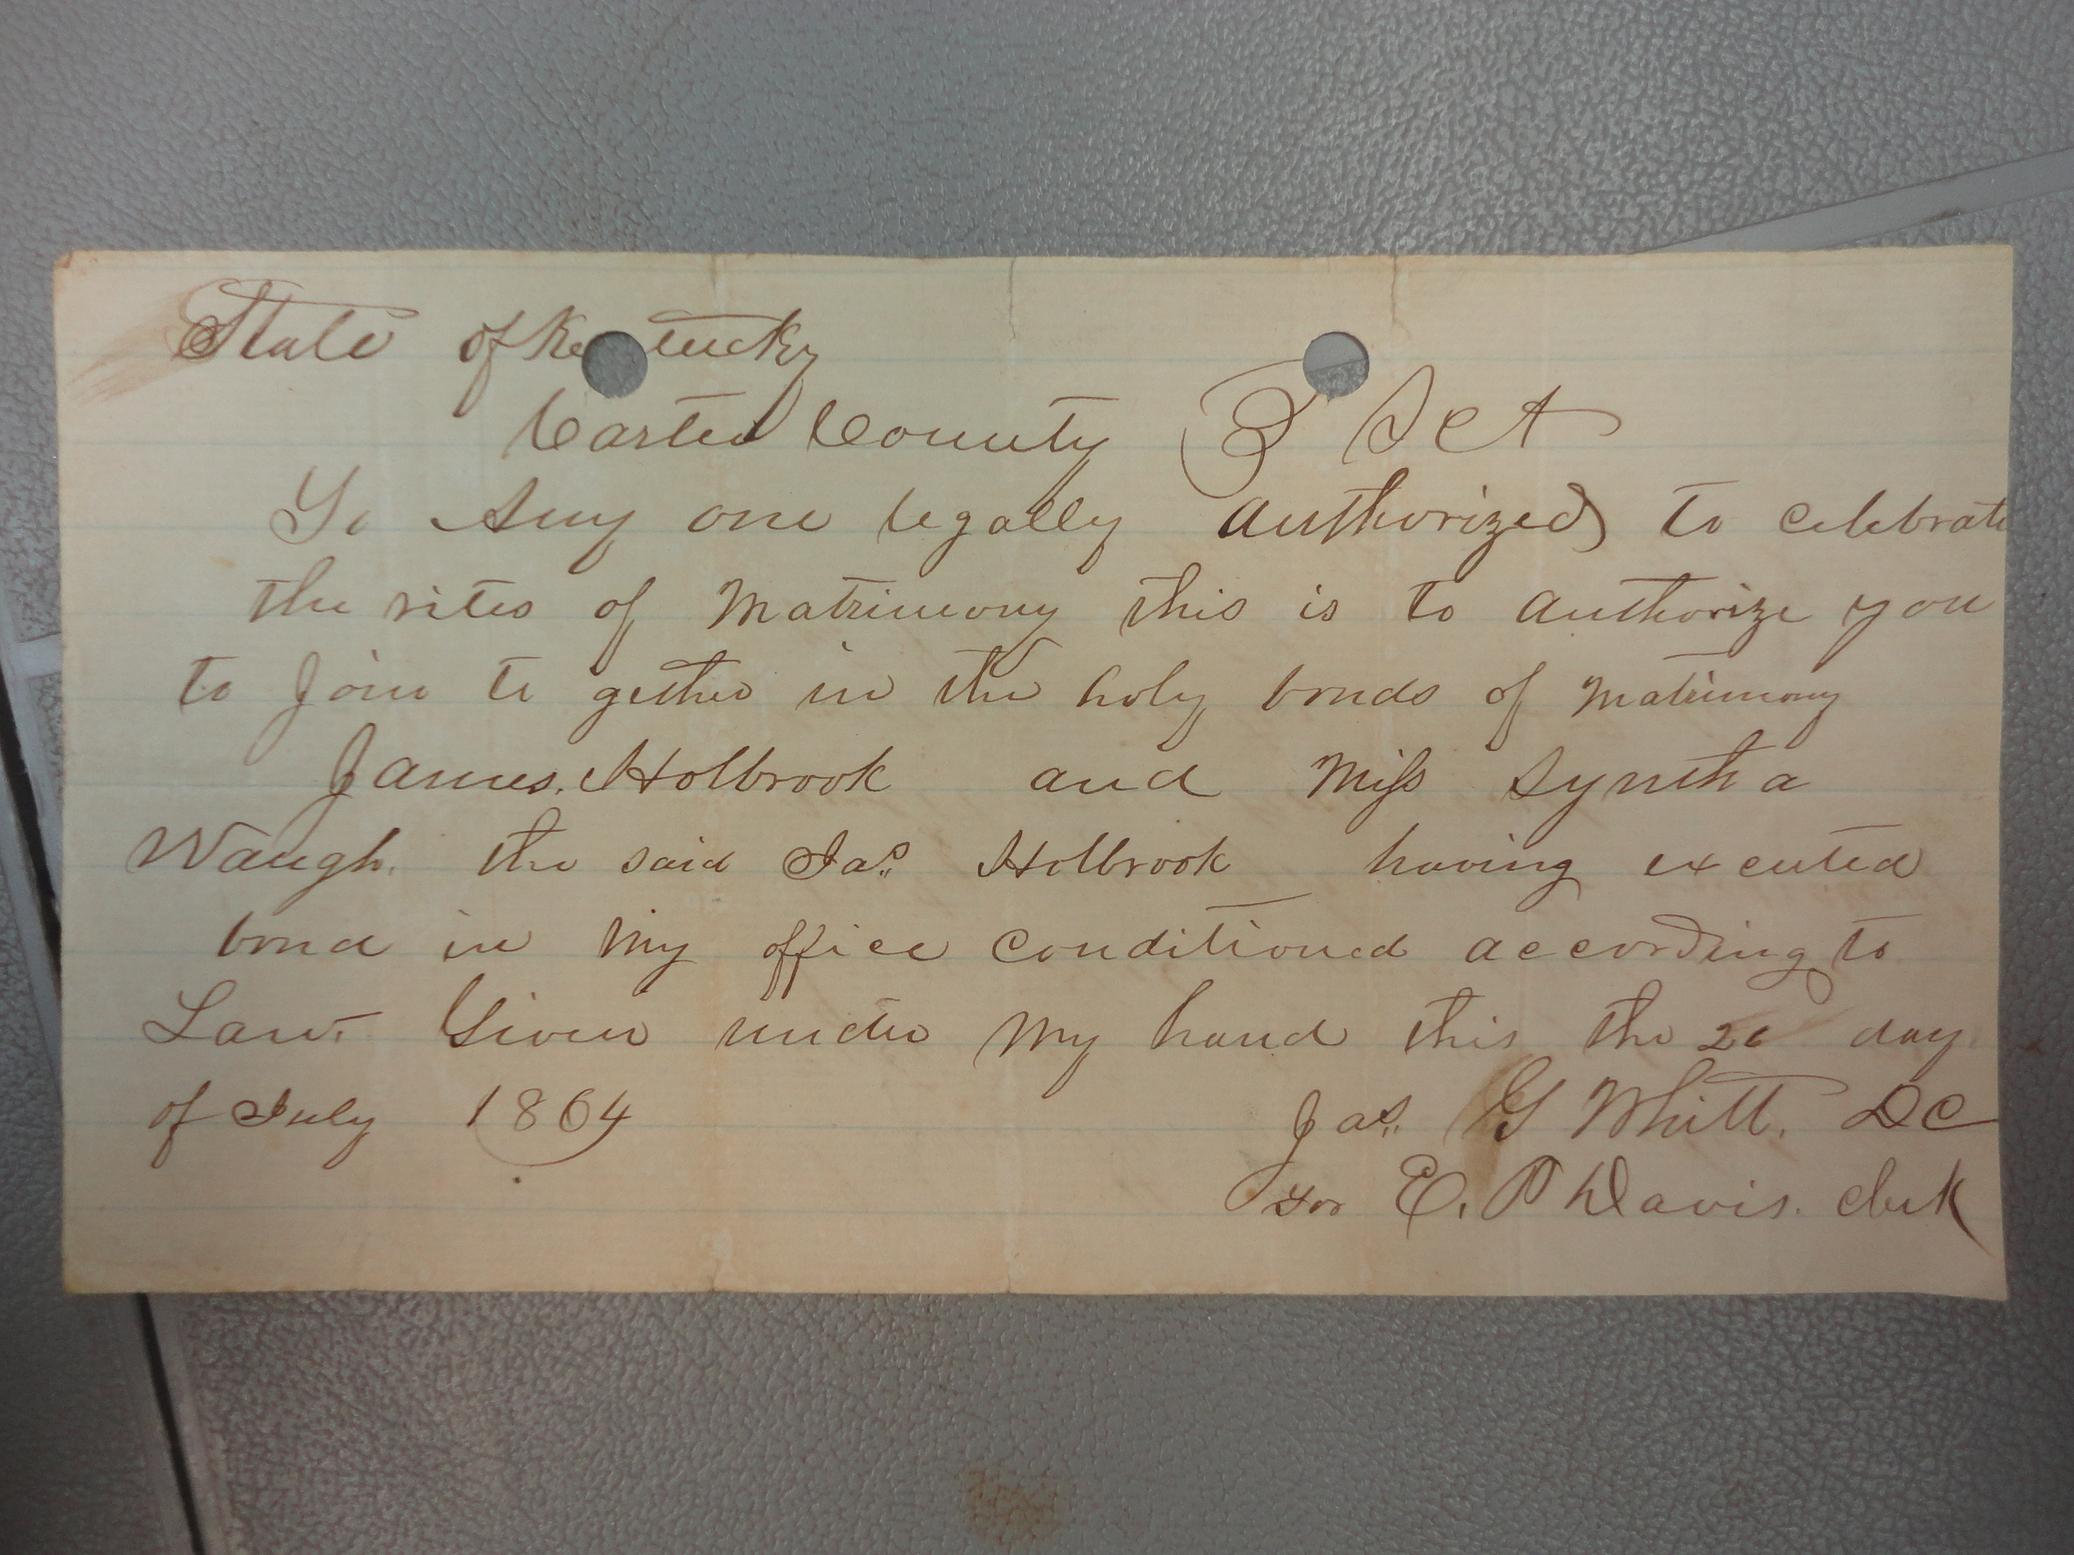 State of Kentucky
Carter County } Sct
To Any one legally authorized to celebrate
the rites of Matrimony this is to authorize you
to Join to gether in the holy bonds of Matrimony
James. Holbrook and Miss Syntha
Waugh. the said Jas. Holbrook having executed
bond in My office conditioned according to
Law. Given under My hand this the 20 day
of July 1864
Jas. G Whitt. DC
For E. P Davis. clerk